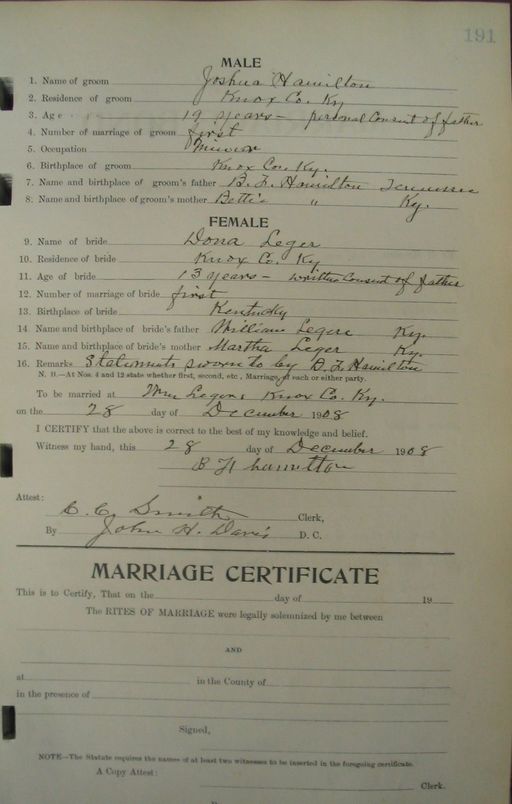 191
MALE
1. Name of groom Joshua Hamilton
2. Residence of groom Knox Co. Ky
3. Age 19 years - personal Consent of father
4. Number of marriage of groom first
5. Occupation Minor
6. Birthplace of groom Knox Co. Ky.
7. Name and birthplace of groom's father B. F. Hamilton Tennessee
8. Name and birthplace of groom's mother Bettie " Ky.
FEMALE
9. Name of bride Dona Leger
10. Residence of bride Knox Co. Ky
11. Age of bride 13 years - written Consent of father
12. Number of marriage of bride first
13. Birthplace of bride Kentucky
14. Name and birthplace of bride's father William Legere Ky.
15. Name and birthplace of bride's mother Martha Leger Ky.
16. Remarks Statements sworn to by B. F. Hamilton
N. B.—At Nos. 4 and 12 state whether first, second, etc., Marriage of each or either party.
To be married at Wm Legers Knox Co. Ky.
on the 28 day of December 1908
I CERTIFY that the above is correct to the best of my knowledge and belief.
Witness my hand, this 28 day of December 1908
B F Hamilton
Attest:
C. C. Smith Clerk,
By John H. Davis D. C.
MARRIAGE CERTIFICATE
This is to Certify, That on the day of 19
The RITES OF MARRIAGE were legally solemnized by me between
AND
at in the County of
in the presence of
Signed,
NOTE—The Statute requires the names of at least two witnesses to be inserted in the foregoing certificate.
A Copy Attest:
Clerk.